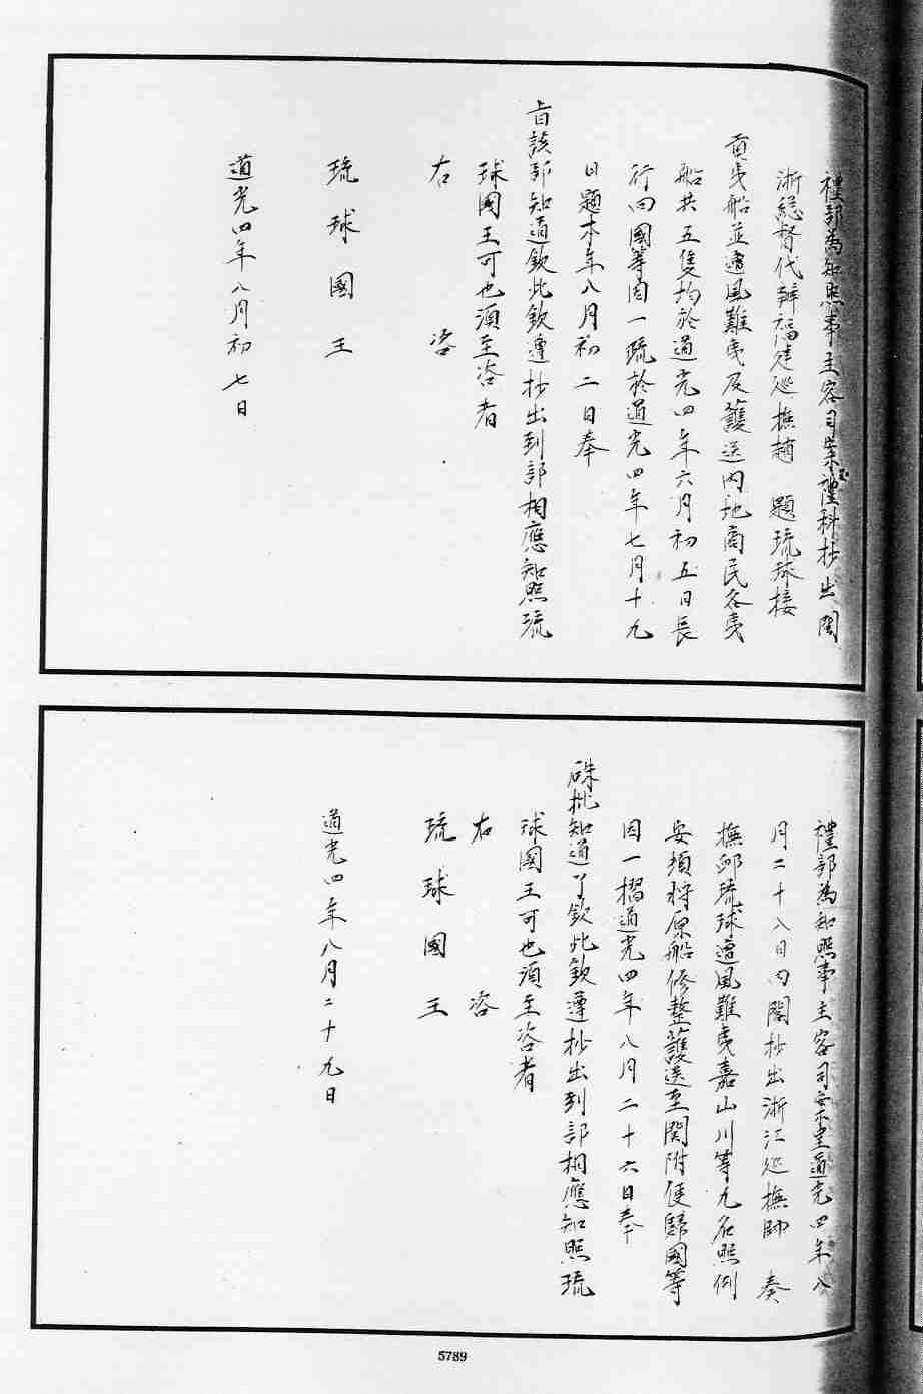 禮部為知照事主客司案呈禮科抄出閩
浙總督代辦福建巡撫趙　題琉球接
貢曳船並遭風難曳及護送內地商民各曳
船共五隻均於道光四年六月初五日長
行回國等因一疏於道光四年七月十九
日題本年八月初二日奉
旨該部知道欽此欽遵抄出到部相應知照琉
球國王可也須至咨者
右　　咨
琉球國王
道光四年八月初七日
禮部為知照事主客司案呈道光四年八
月二十八日內閣抄出浙江巡撫帥　奏
撫卹琉球遭風難曳嘉山川等九名照例
安頓將原船修整護送至閩附便歸國等
因一摺道光四年八月二十六日奉
硃批知道了欽此欽遵抄出到部相應知照琉
球國王可也須至咨者
右　　咨
琉球國王
道光四年八月二十九日
5789